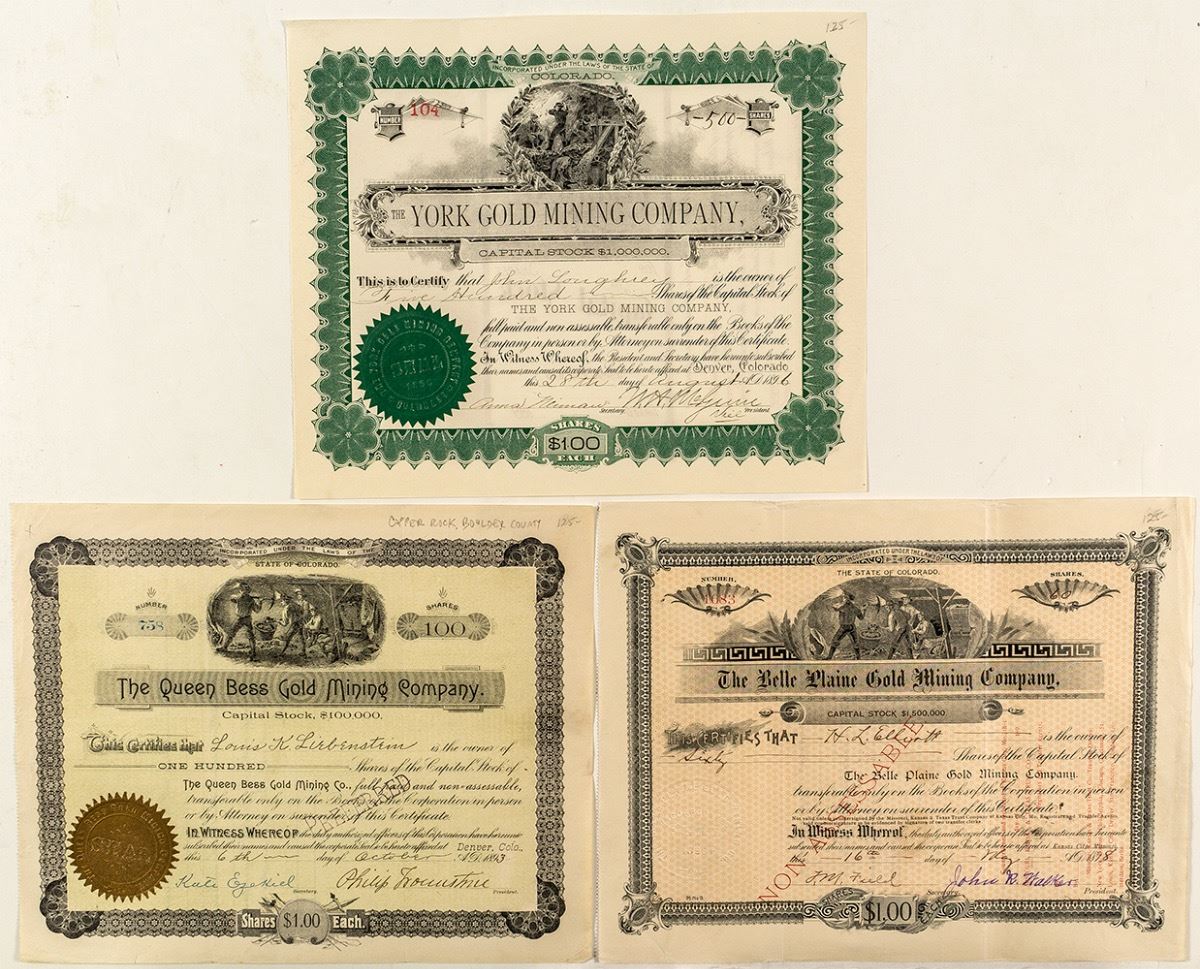 125-
INCORPORATED UNDER THE LAWS OF THE STATE OF
COLORADO.
NUMBER
104
-500-
SHARES
THE YORK GOLD MINING COMPANY,
CAPITAL STOCK $1,000,000.
This is to Certify that John Loughrey is the owner of
Five Hundred Shares of the Capital Stock of
THE YORK GOLD MINING COMPANY,
full paid and non assessable, transferable only on the Books of the
Company in person or by Attorney on surrender of this Certificate.
In Witness Whereof, the President and Secretary have hereunto subscribed
their names and caused its corporate Seal to be hereto affixed at Denver, Colorado
this 28th day of August A.D. 1896
Anna Secretary. W. H. McGuire Vice President
SEAL
SHARES
$1.00
EACH
COPPER ROCK, BOULDER COUNTY 125-
INCORPORATED UNDER THE LAWS OF THE
STATE OF COLORADO.
NUMBER
758
SHARES
100
The Queen Bess Gold Mining Company.
Capital Stock, $100,000,
This Certifies that Louis K. Lirbenstein is the owner of
ONE HUNDRED Shares of the Capital Stock of
The Queen Bess Gold Mining Co., full paid and non-assessable,
transferable only on the Books of the Corporation in person
or by Attorney on surrender of this Certificate.
IN WITNESS WHEREOF the duly authorized officers of this Corporation have hereunto
subscribed their names and caused the corporate Seal to be hereto affixed at Denver, Colo.,
this 6th day of October A.D. 1893
Kate Ezekiel Secretary. Philip President.
Shares $1.00 Each.
125-
INCORPORATED UNDER THE
THE STATE OF COLORADO.
NUMBER.
SHARES.
60
The Belle Plaine Gold Mining Company.
CAPITAL STOCK $1,500,000
THIS CERTIFIES THAT H. L. Elliott is the owner of
Sixty Shares of the Capital Stock of
The Belle Plaine Gold Mining Company.
transferable only on the Books of the Corporation in person
or by Attorney on surrender of this Certificate.
In Witness Whereof, the duly authorized officers of this Corporation have hereunto
subscribed their names and caused the corporate Seal to be hereto affixed at Kansas City Missouri,
this 16th day of May A.D. 1898
F. M. Field Secretary. John R. Walker President.
NON-ASSESSABLE
SHARES
$1.00
EACH